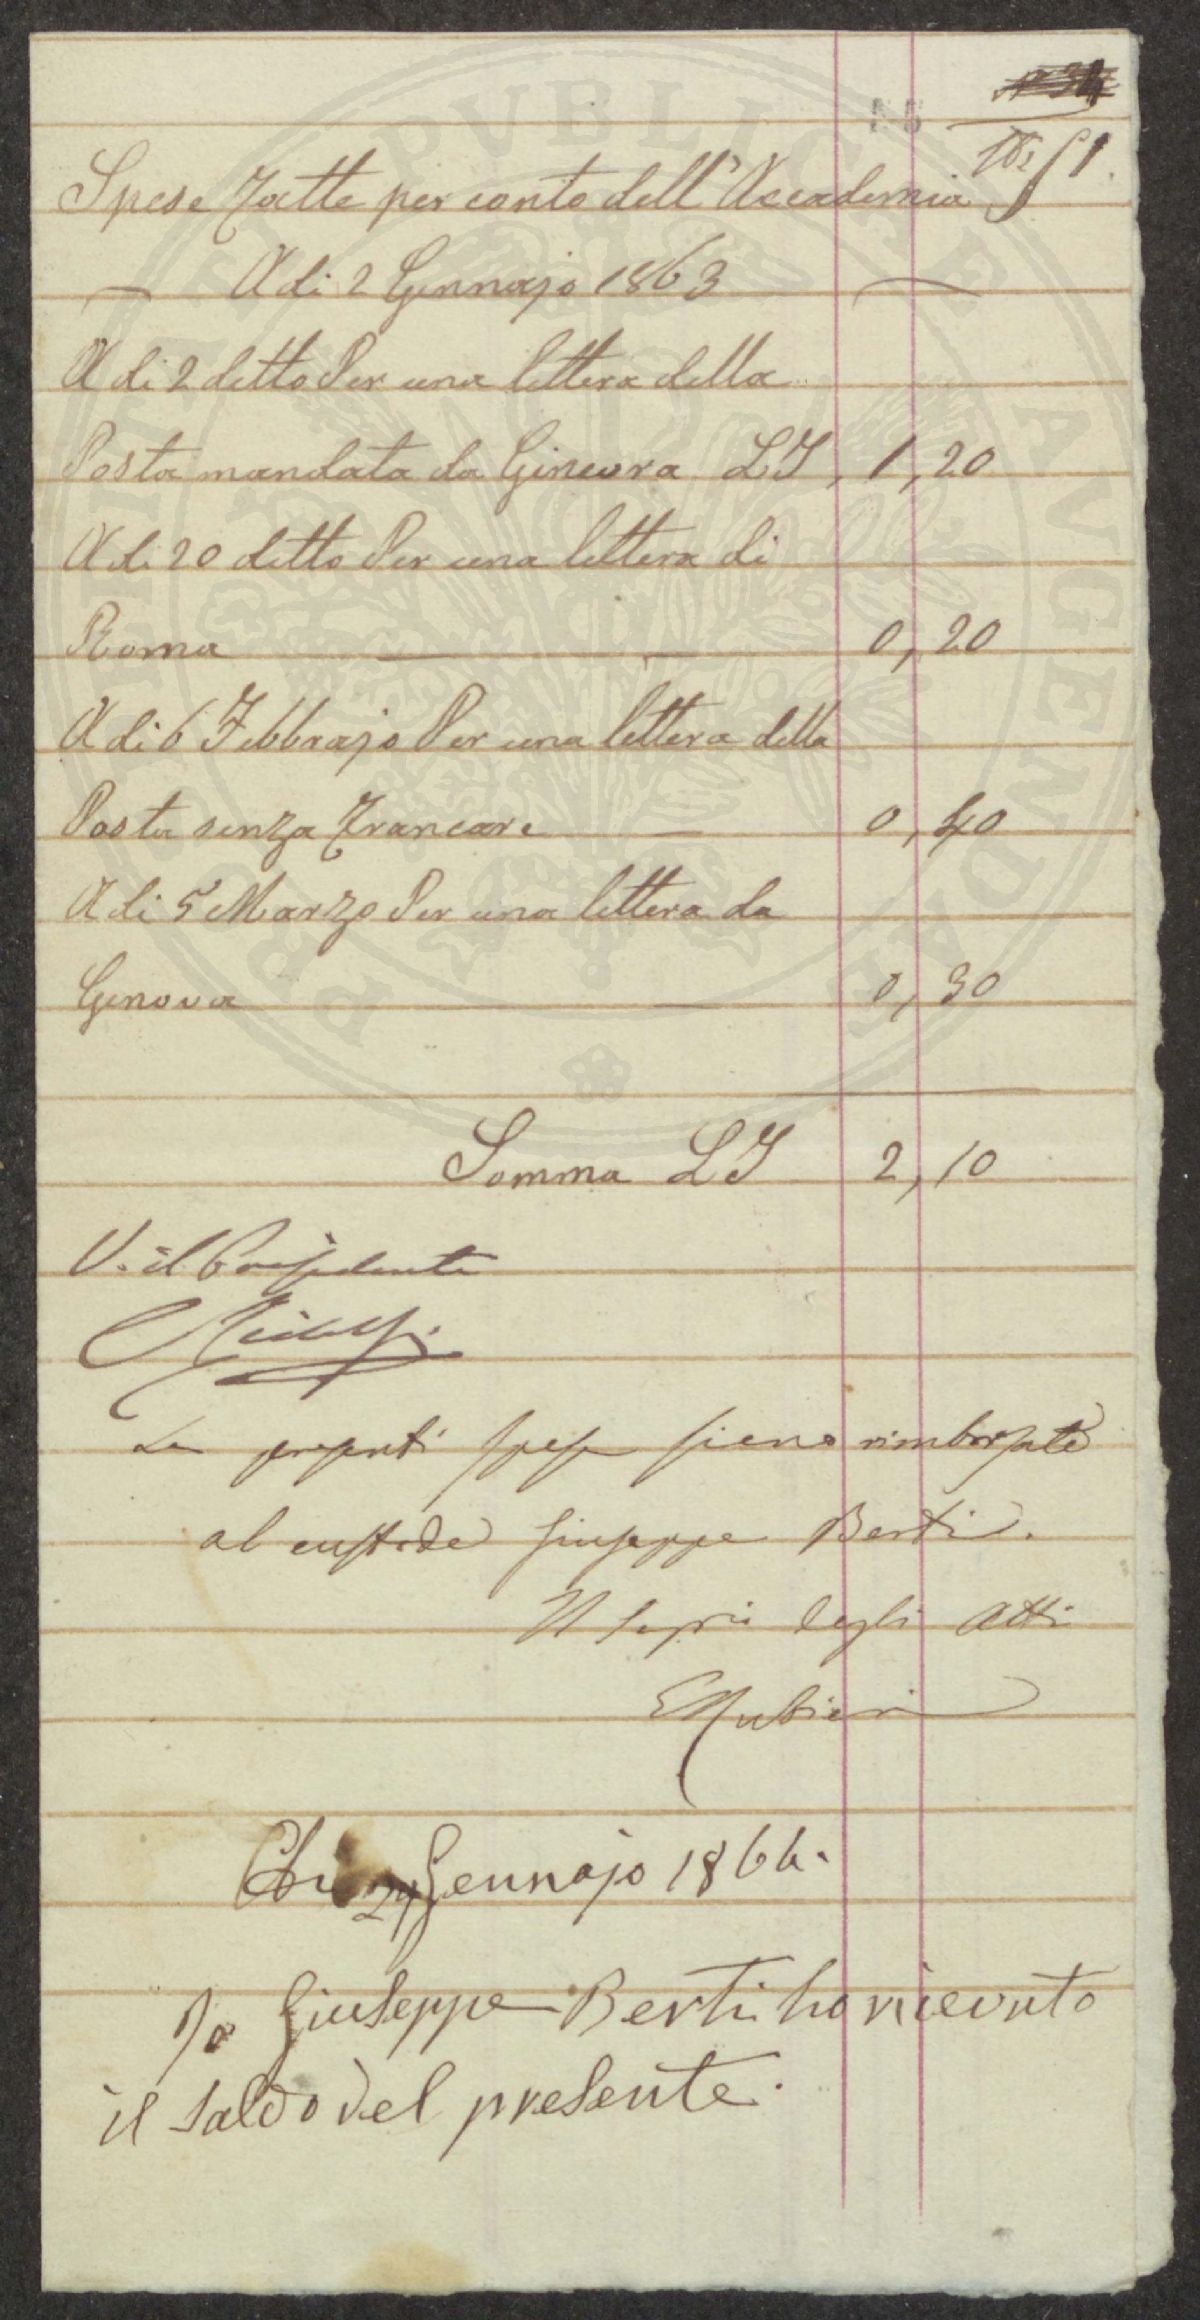 55
51.
Spese Fatte per conto dell'Accademia
A di 2 Gennajo 1863
A di 2 detto Per una lettera della
Posta mandata da Ginevra LI, 1,20
A di 20 detto Per una lettera di
Roma 0,20
A di 6 Febbrajo Per una lettera della
Posta senza Francare 0,40
A di 5 Marzo Per una lettera da
Genova 0,30
Somma LI 2,10
V. il Presidente
Ridolfi
Le presenti spese sieno rimborsate
al custode Giuseppe Berti.
Il Segrio degli Atti
Gennajo 1864.
Io Giuseppe Berti ho ricevuto
il saldo del presente.
PROSPERITATI PVBLICAE AVGENDAE